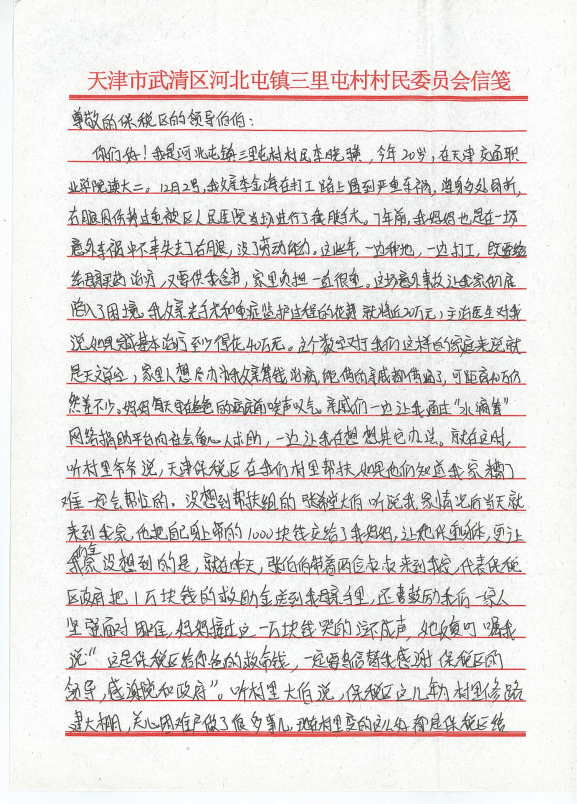 天津市武清区河北屯镇三里屯村村民委员会信笺
尊敬的保税区的领导伯伯：
你们好！我是河北屯镇三里屯村村民李晓骥，今年20岁，在天津交通职
业学院读大二。12月2号，我父亲李金海在打工路上遇到严重车祸，造身多处骨折，
右眼因伤势过重被区人民医院当场进行了手术。7年前，我妈妈也是在一场
意外车祸中不幸失去了右眼，没了劳动能力。这些年，一边种地，一边打工，既要给
母亲买药治疗，又要供我念书，家里负担一直很重。这场意外事故让我家彻底
陷入了困境。我父亲光手术和重症监护过程的花费就将近20万元，主治医生对我
说如果基本治疗至少得花40万元。这个数字对于我们这样的家庭来说就
是天文数字，家里人想尽办法给父亲筹钱治病，能借的亲戚都借遍了，可距离40万仍
然差不少。妈妈每天守在爸爸的病床前唉声叹气。亲戚们一边让我通过“水滴筹”
网络捐助平台向社会爱心人求助，一边让我在想想其它办法。就在这时，
听村里爷爷说，天津保税区在我们村里帮扶，如果他们知道我家糟了
难一定会帮忙的。没想到帮扶组的张大伯听说我家情况后当天就
来到我家，他把自己身上带的1000块钱交给了我妈妈，让她保重身体，更让
我全家没想到的是，就在昨天，张伯伯带着两位叔叔来到我家，代表保税
区政府把1万块钱的救助金送到我母亲手里，还鼓励我们一家人
坚强面对困难，妈妈接过这一万块钱哭的泣不成声，她反复叮嘱我
说“这是保税区给你爸的救命钱，一定要写信替我感谢保税区的
领导，感谢党和政府”。听村里大伯说，保税区这几年为村里修路
建大棚，关心困难户做了很多事儿，现在村里变的这么好都是保税区给